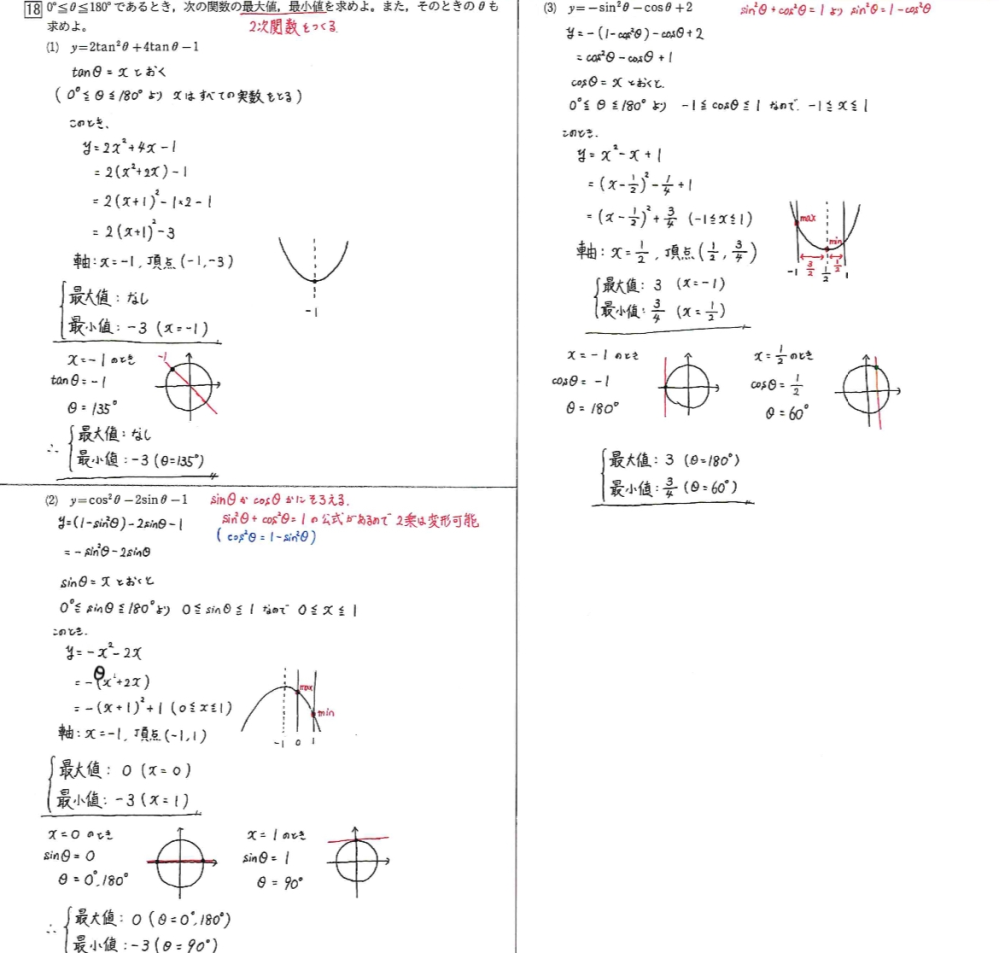 18 0°≦θ≦180°であるとき，次の関数の最大値，最小値を求めよ。また，そのときのθも
求めよ。
2次関数をつくる
(1) y=2tan²θ+4tanθ-1
tanθ=xとおく
(0°≦θ≦180°より xはすべての実数をとる)
このとき、
y=2x²+4x-1
=2(x²+2x)-1
=2(x+1)²-1×2-1
=2(x+1)²-3
軸:x=-1, 頂点(-1,-3)
-1
最大値:なし
最小値:-3(x=-1)
x=-1のとき
-1
tanθ=-1
θ=135°
∴ 最大値:なし
最小値:-3(θ=135°)
(2) y=cos²θ-2sinθ-1
sinθかcosθかにそろえる.
y=(1-sin²θ)-2sinθ-1
sin²θ+cos²θ=1の公式があるので2乗は変形可能
(cos²θ=1-sin²θ)
=-sin²θ-2sinθ
sinθ=xとおくと
0°≦sinθ≦180°より 0≦sinθ≦1なので 0≦x≦1
このとき.
y=-x²-2x
θ
=-(x²+2x)
=-(x+1)²+1 (0≦x≦1)
軸:x=-1, 頂点(-1,1)
max
min
-1 0 1
最大値: 0 (x=0)
最小値:-3(x=1)
x=0のとき
sinθ=0
θ=0°,180°
x=1のとき
sinθ=1
θ=90°
∴ 最大値: 0(θ=0°,180°)
最小値:-3(θ=90°)
(3) y=-sin²θ-cosθ+2
sin²θ+cos²θ=1より sin²θ=1-cos²θ
y=-(1-cos²θ)-cosθ+2
=cos²θ-cosθ+1
cosθ=xとおくと.
0°≦θ≦180°より -1≦cosθ≦1なので. -1≦x≦1
このとき.
y=x²-x+1
=(x-1/2)²-1/4+1
=(x-1/2)²+3/4 (-1≦x≦1)
軸:x=1/2, 頂点(1/2, 3/4)
max
min
-1 3/2 1/2 1/2 1
最大値: 3 (x=-1)
最小値: 3/4 (x=1/2)
x=-1のとき
cosθ=-1
θ=180°
x=1/2のとき
cosθ=1/2
θ=60°
最大値: 3 (θ=180°)
最小値: 3/4 (θ=60°)